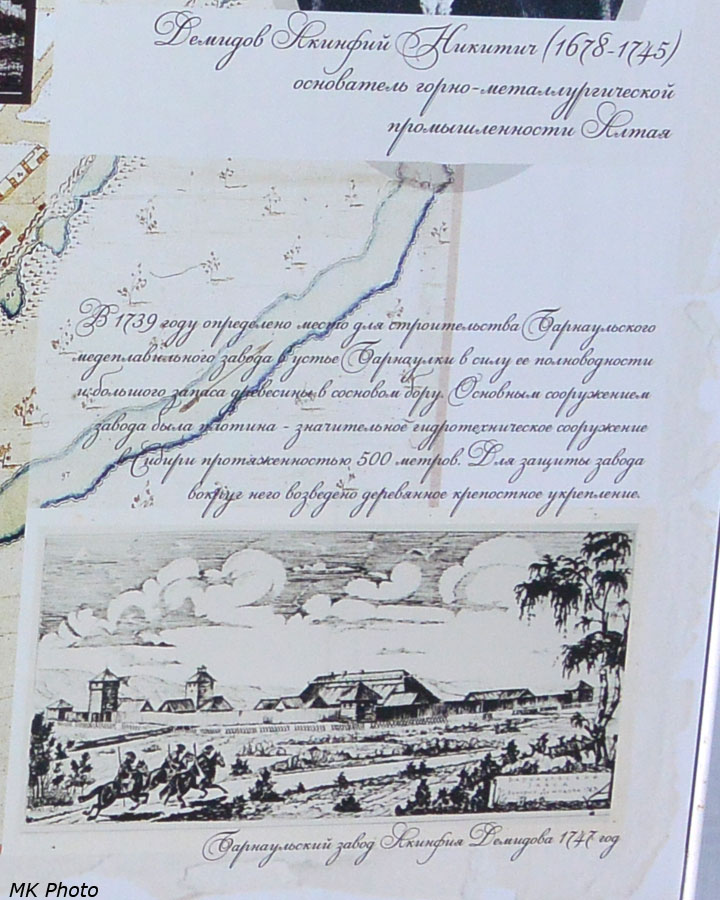 Демидов Акинфий Никитич (1678-1745)
основатель горно-металлургической
промышленности Алтая
В 1739 году определено место для строительства Барнаульского
медеплавильного завода в устье Барнаулки в силу ее полноводности
и большого запаса древесины в сосновом бору. Основным сооружением
завода была плотина - значительное гидротехническое сооружение
в Сибири протяженностью 500 метров. Для защиты завода
вокруг него возведено деревянное крепостное укрепление.
Барнаульский завод Акинфия Демидова 1747 год
MK Photo